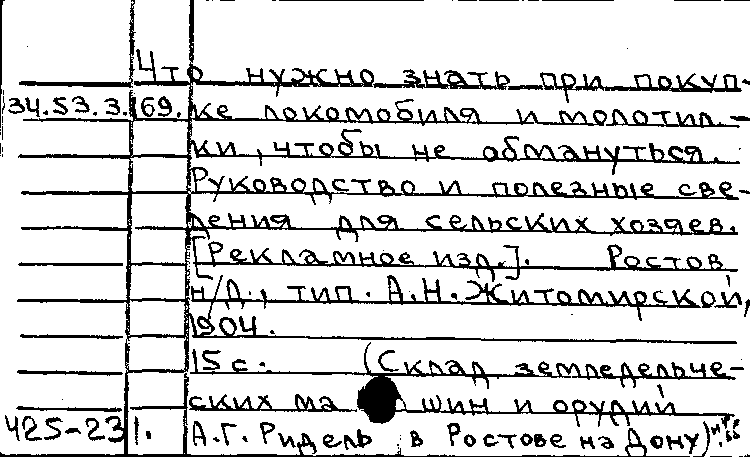 Что нужно знать при покуп-
34.53.3.169. ке локомобиля и молотил-
ки, чтобы не обмануться.
Руководство и полезные све-
дения для сельских хозяев.
[Рекламное изд.]. Ростов
н/Д., тип. А.Н. Житомирской,
1904.
15 с. (Склад земледельче-
ских машин и орудий
425-23 1. А.Г. Ридель в Ростове на Дону)